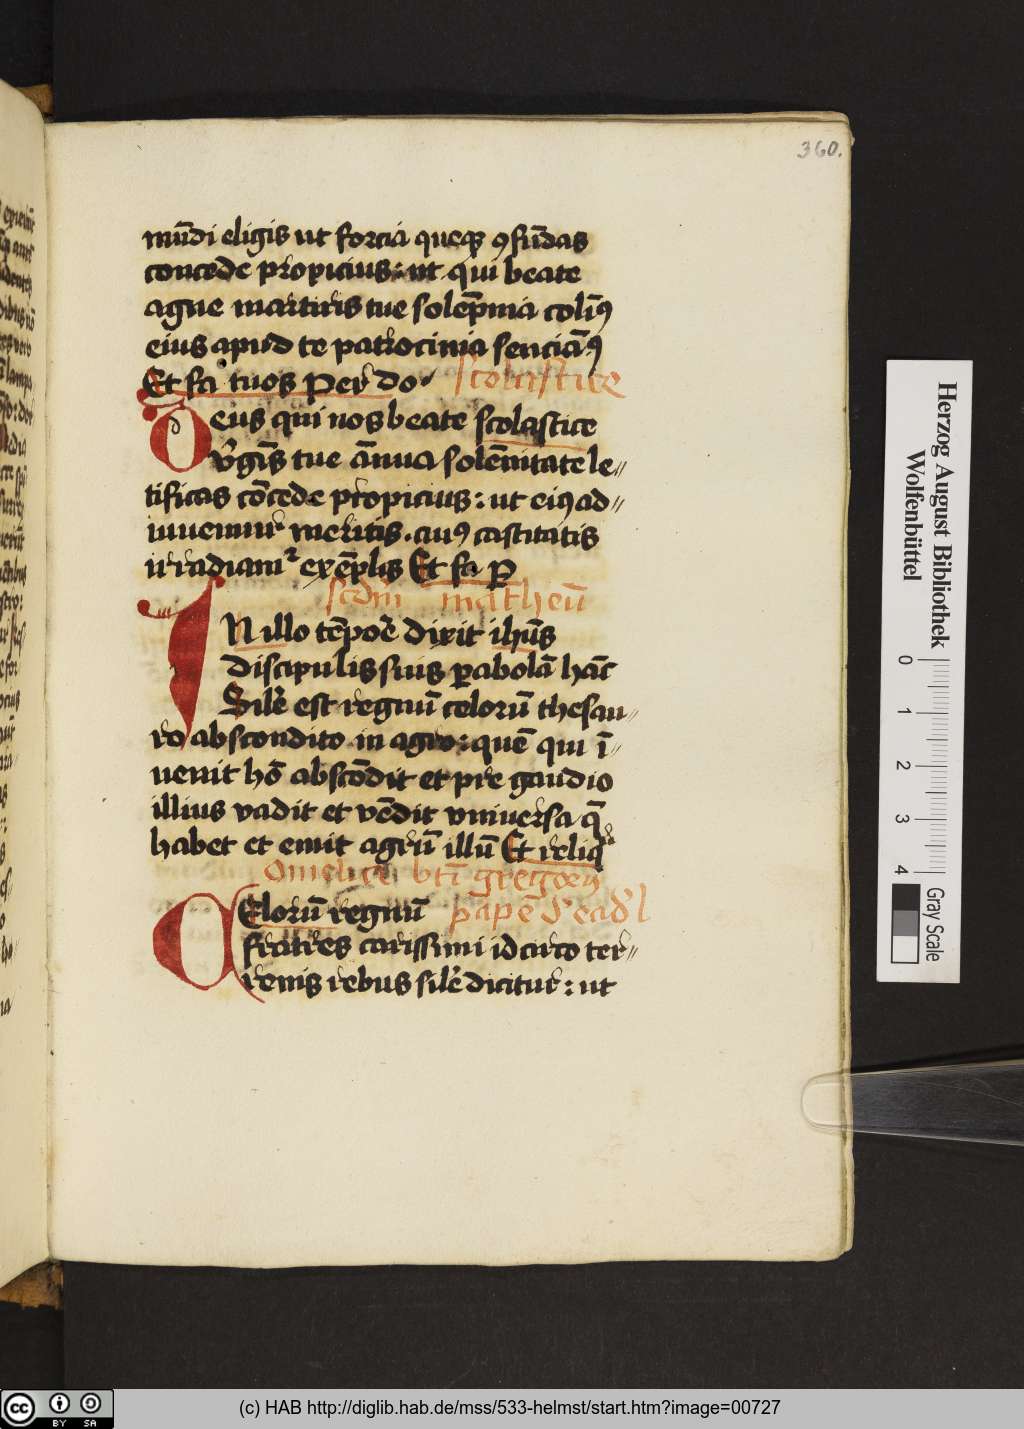 360.
mūdi eligis ut forcia queqꝫ ꝯfūdas
concede propicius: ut qui beate
agne martiris tue solēpnia colimꝰ
eius apud te patrocinia senciāꝰ
Et fa tuos Per do
scolastice
Deus qui nos beate scolastice
v̓gīs tue ānua solēnitate le〃
tificas cōcede propicius: ut eiꝰ ad〃
iuuemur meritis. cuiꝰ castitatis
irradiamr exēplis Et fa ꝑ
scdm matheū
IN illo tēpoē dixit ihūs
discipulis suis ꝑabolā hāc
Silē est regnū celorū thesau〃
ro abscondito in agro: quē qui ī〃
uenit hō abscōdit et pre gaudio
illius vadit et vēdit vniuersa q̄
habet et emit agrū illū Et reliq
Omelie bti gregorij
CElorū regnū
pape
fratres carissimi idcirco ter〃
renis rebus silē dicitur: ut
Herzog August Bibliothek
Wolfenbüttel
0 1 2 3 4
Gray Scale
cc BY SA
(c) HAB http://diglib.hab.de/mss/533-helmst/start.htm?image=00727